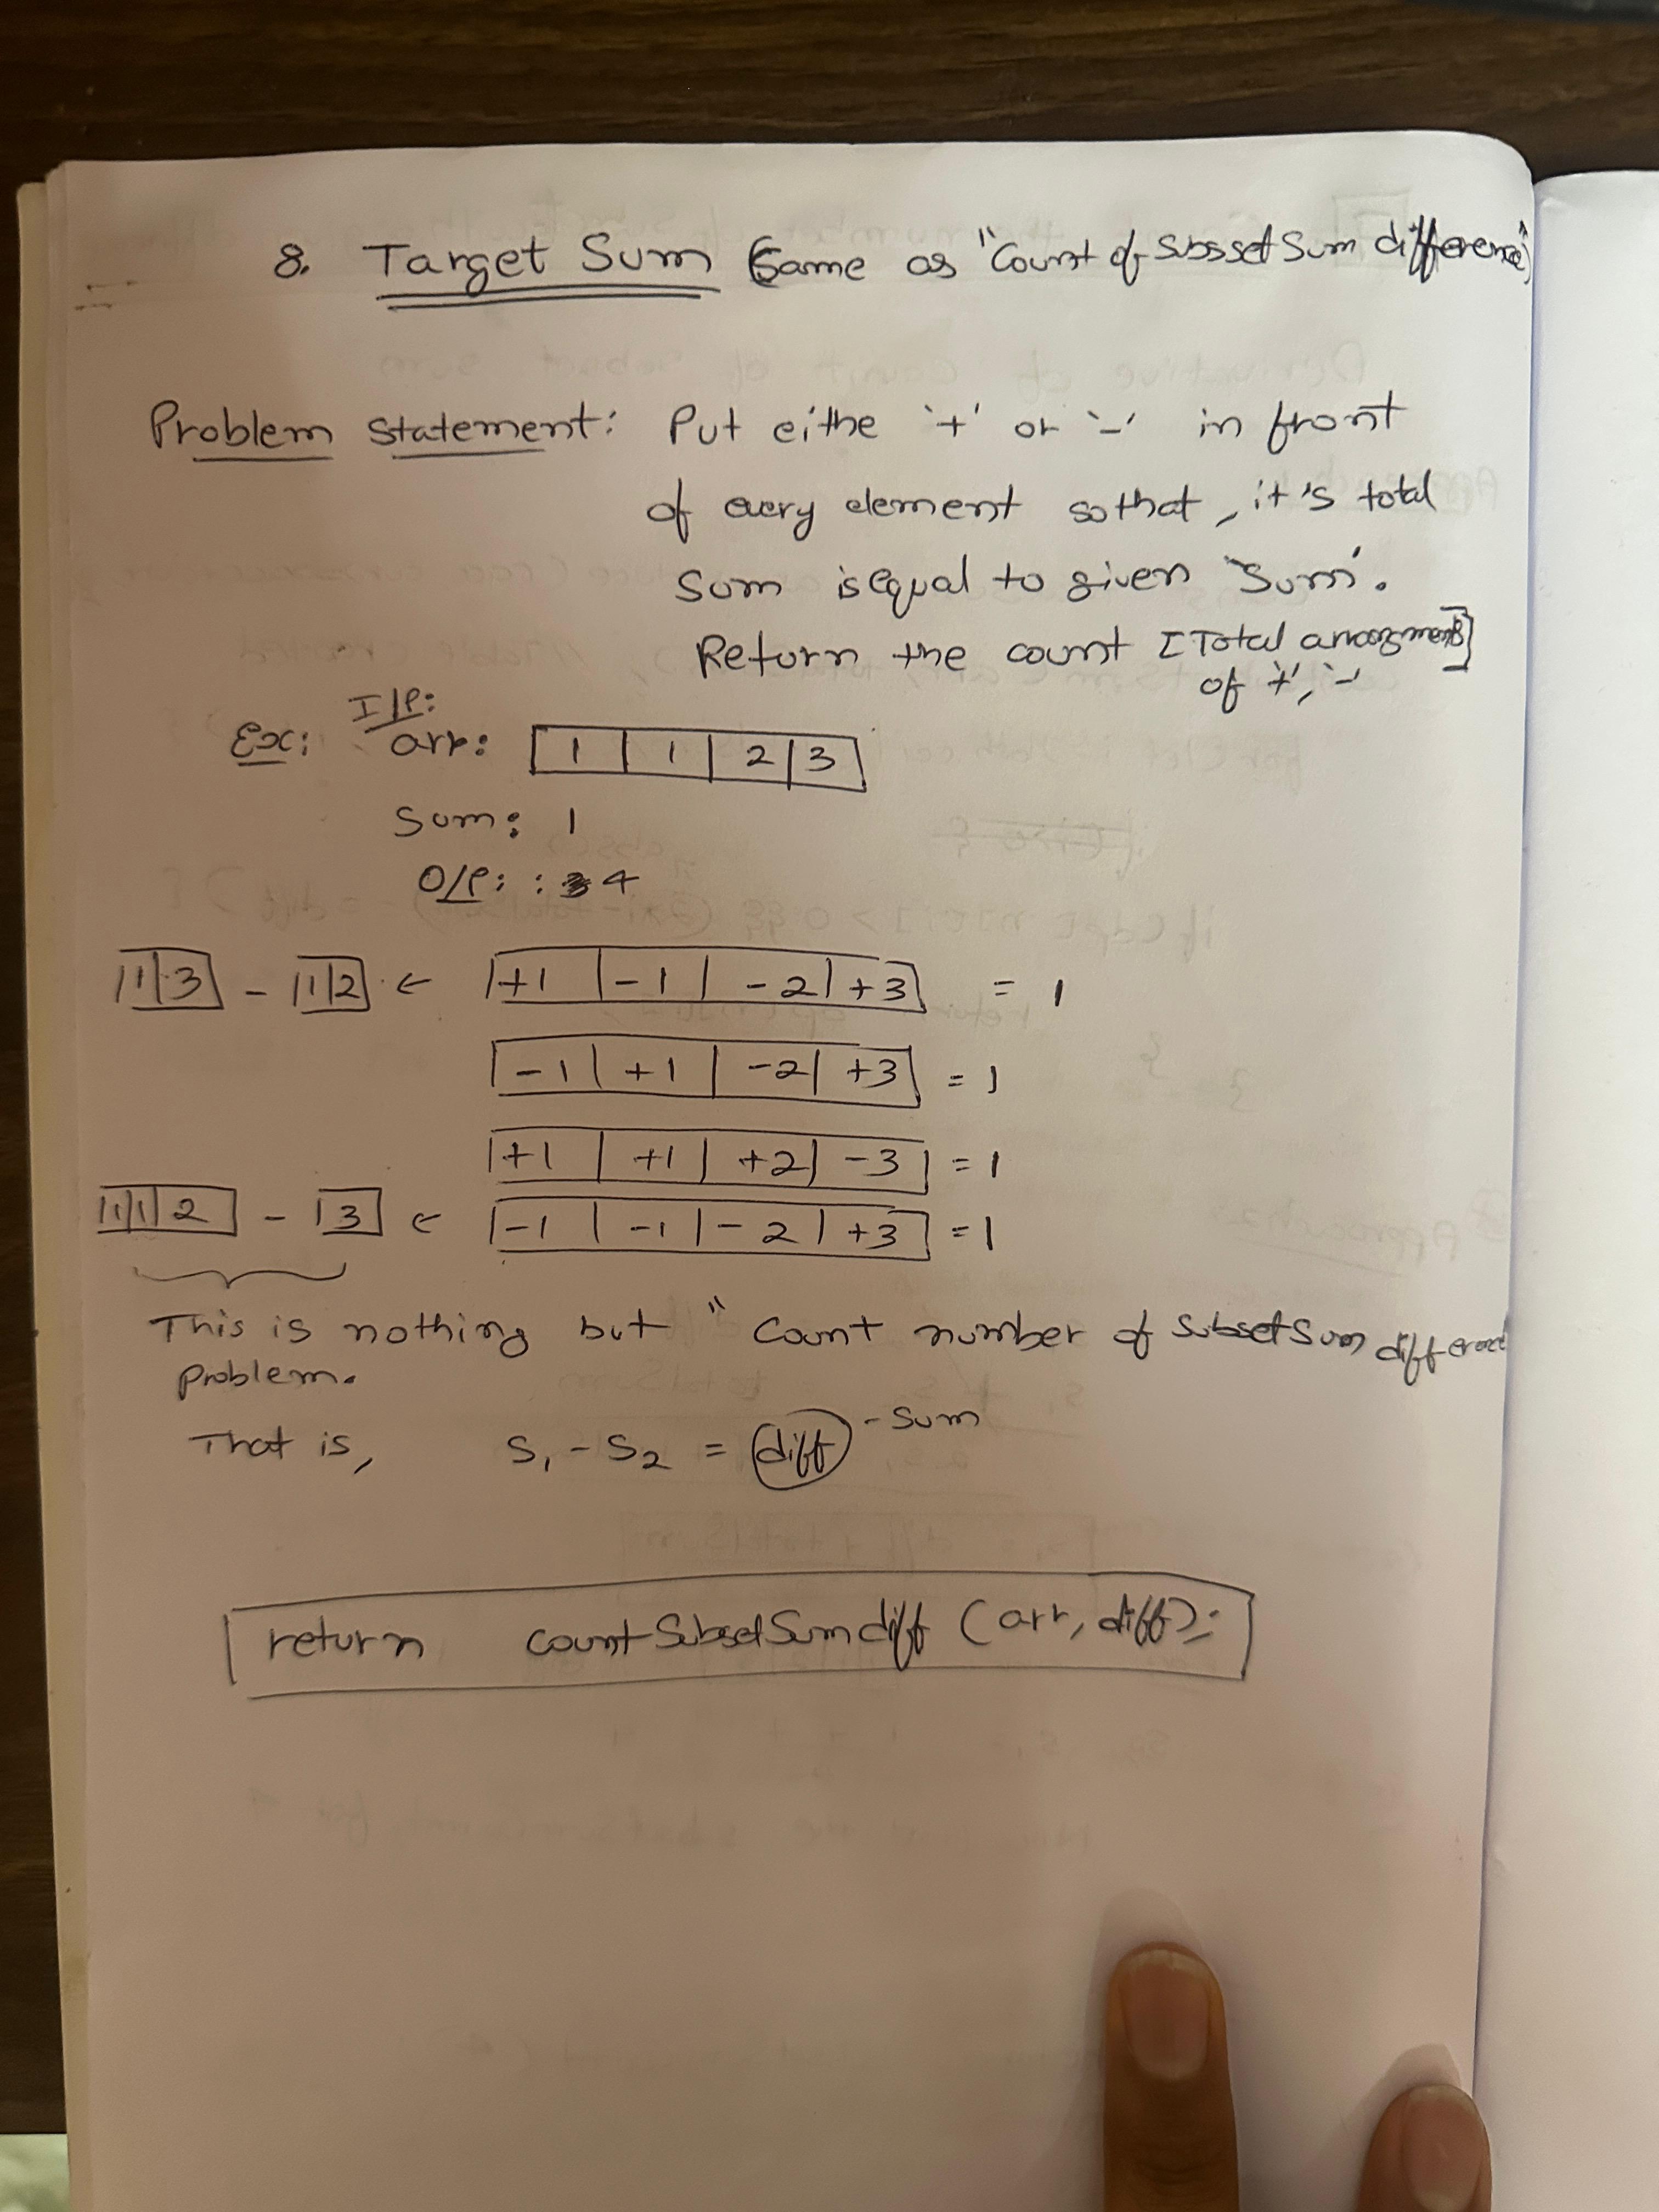 8. Target Sum (Same as "Count of Subsset Sum difference")
Problem statement: Put eithe '+' or '-' in front
of every element so that, it's total
Sum is equal to given 'Sum'.
Return the count [Total arrangments]
of '+', '-'
I/P:
Ex: arr: 1 | 1 | 2 | 3
Sum: 1
O/P: : 4
1 | 3 - 1 | 2 ← +1 | -1 | -2 | +3 = 1
-1 | +1 | -2 | +3 = 1
+1 | +1 | +2 | -3 = 1
1 | 1 | 2 - 3 ← -1 | -1 | -2 | +3 = 1
This is nothing but " Count number of Subset Sum difference
Problem.
That is, S₁ - S₂ = diff - Sum
return countSubsetSumdiff (arr, diff);